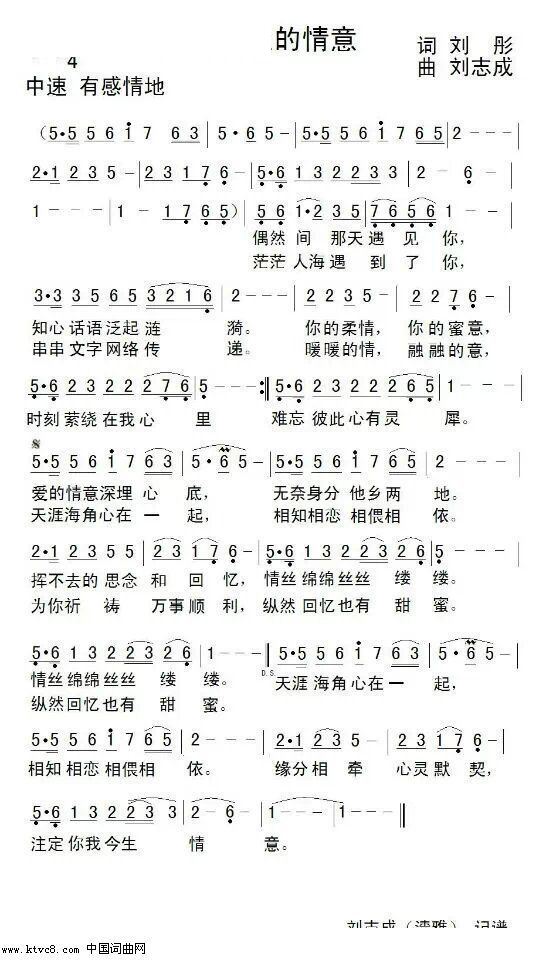 的情意
词 刘 彤
4
曲 刘志成
中速 有感情地
(5·5 5 6 1 7 6 3 | 5·6 5 - | 5·5 5 6 1 7 6 5 | 2 - - -
2·1 2 3 5 - | 2 3 1 7 6 - | 5·6 1 3 2 2 3 3 | 2 - 6 -
1 - - - | 1 - 1 7 6 5) | 5 6 1·2 3 5 | 7 6 5 6 1 -
偶然 间 那天 遇 见 你,
茫茫 人海 遇 到 了 你,
3·3 3 5 6 5 3 2 1 6 | 2 - - - | 2·1 2 3 5 - | 2 2 7 6 -
知心 话语 泛起 涟 漪。 你的柔情, 你的 蜜意,
串串 文字 网络 传 递。 暖暖的情, 融融的意,
5·6 1 2 2 2 2 7 6 | 5 - - - :| 5·6 1 3 2 2 2 6 5 | 1 - - -
时刻 萦绕 在我 心 里 难忘 彼此 心有 灵 犀。
5·5 5 6 1 7 6 3 | 5·6 5 - | 5·5 5 6 1 7 6 5 | 2 - - -
爱的 情意 深埋 心 底, 无奈 身分 他乡 两 地。
天涯 海角 心在 一 起, 相知 相恋 相偎 相 依。
2·1 2 3 5 5 | 2 3 1 7 6 - | 5·6 1 3 2 2 3 2 6 | 5 - - -
挥不去的 思念 和 回 忆, 情丝 绵绵 丝丝 缕 缕。
为你祈 祷 万事 顺 利, 纵然 回忆 也有 甜 蜜。
5·6 1 3 2 2 2 3 6 | 1 - - - | 5·5 5 6 1 7 6 3 | 5·6 5 -
D.S.
情丝 绵绵 丝丝 缕 缕。 天涯 海角 心在 一 起,
纵然 回忆 也有 甜 蜜。
5·5 5 6 1 7 6 5 | 2 - - - | 2·1 2 3 5 - | 2 2 3 1 7 6 -
相知 相恋 相偎 相 依。 缘分 相 牵 心灵 默 契,
5·6 1 3 2 2 2 3 | 2 - 6 - | 1 - - - | 1 - - -
注定 你我 今生 情 意。
刘志成 记谱
www.ktvc8.com 中国词曲网